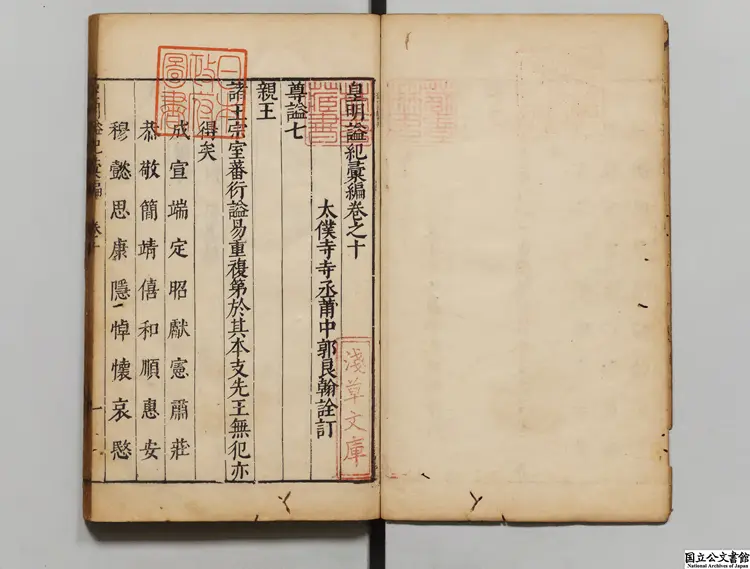 皇明謚紀彙編卷之十
太僕寺寺丞莆中郭良翰詮訂
尊謚七
親王
諸王宗室蕃衍謚易重複第於其本支先王無犯亦
得矣
成宣端定昭獻憲肅莊
恭敬簡靖僖和順惠安
穆懿思康隱悼懷哀愍
皇明謚紀彙編 卷十 一
淺草文庫
日本
政府
圖書
國立公文書館
National Archives of Japan